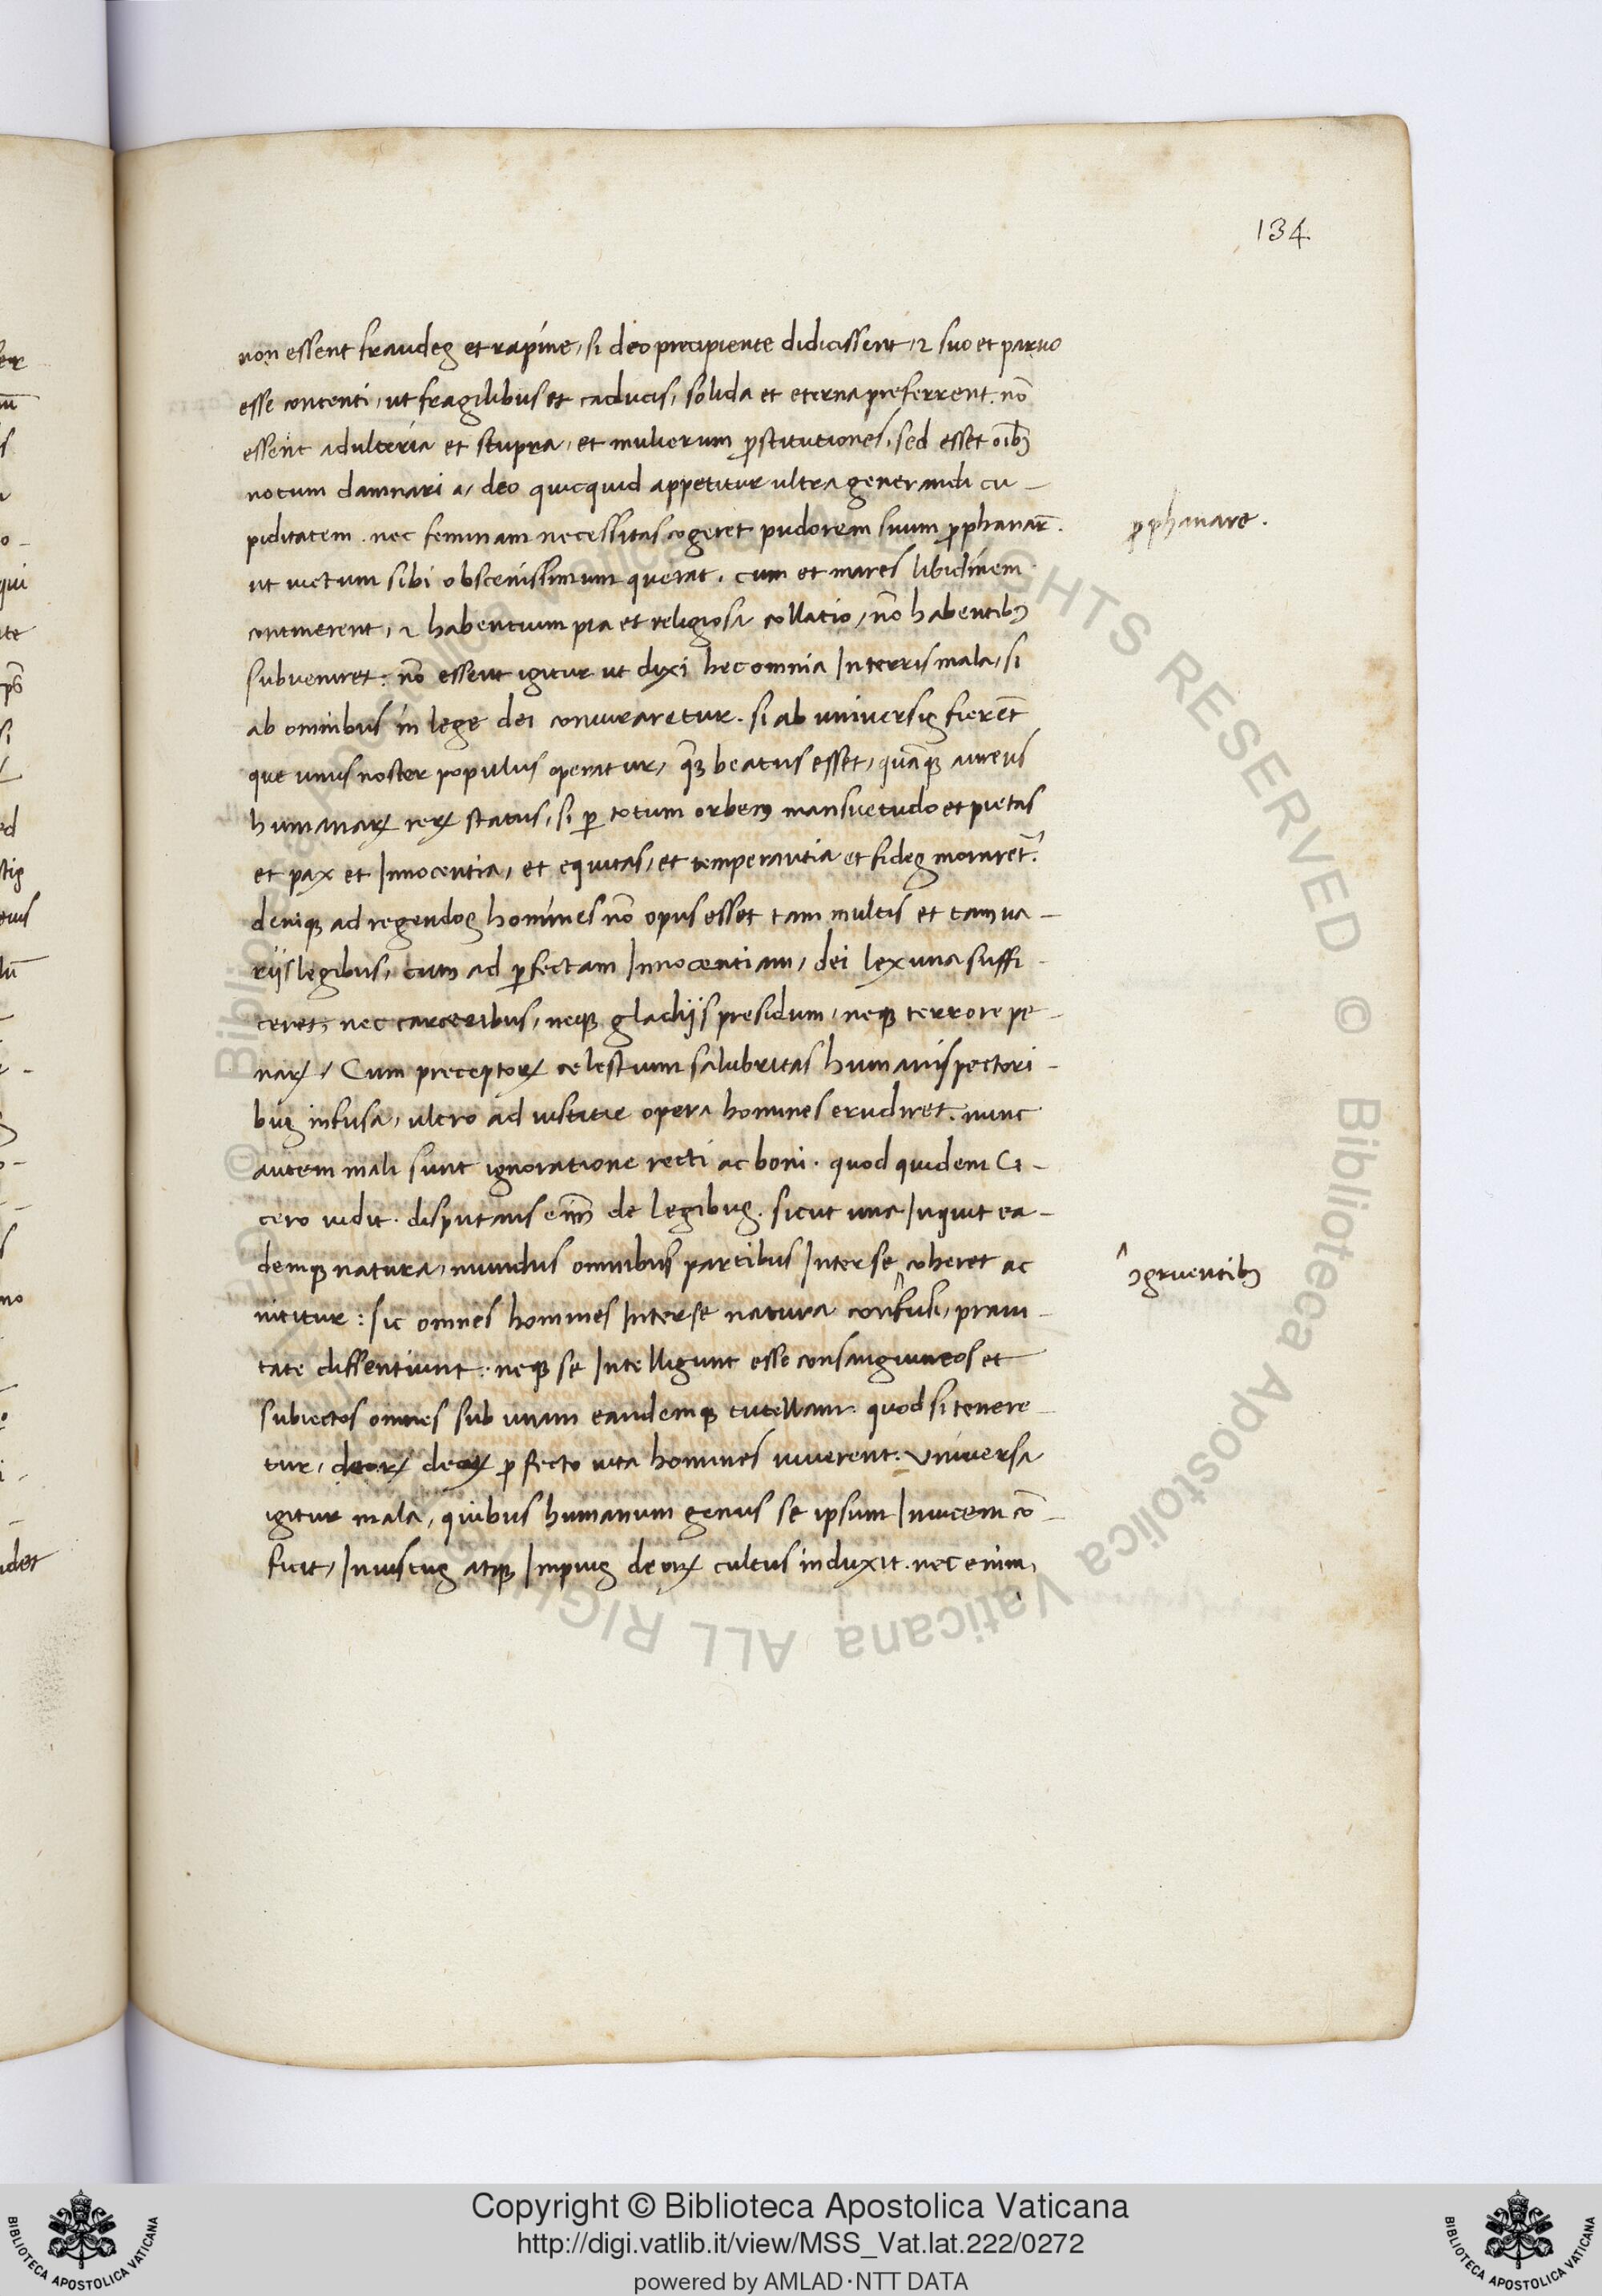 134
non essent fraudes et rapine, si deo precipiente didicissent, ⁊ suo et paruo
esse contenti, ut fragilibus et caducis, solida et eterna preferrent. nō
essent adulteria et stupra, et mulierum ꝓstitutiones, sed esset oībꝫ
notum damnari a, deo quicquid appetitur ultra generandi cu-
piditatem. nec feminam necessitas cogeret pudorem suum ꝓphanar̄.
ut uictum sibi obscenissimum querat, cum et mares libidinem
continerent, ⁊ habentium pia et religiosa collatio, nō habentibꝫ
subueniret: nō essent igitur ut dixi hec omnia In terris mala, si
ab omnibus in legē dei coniuraretur. si ab uniuersis fierēt
que unus noster populus operatur, qꝫ beatus esset, quāqꝫ aureus
humanaꝝ reꝝ status, si ꝑ totum orbem mansuetudo et pietas
et pax et Innocentia, et equitas, et temperantia et fides morarēt?
deniqꝫ ad regendos homines nō opus esset tam multis et tam ua-
riis legibus, cum ad ꝑfectam Innocentiam, dei lex una suffi-
ceret, nec carceribus, neqꝫ gladiis presidum, neqꝫ terrore pe-
naꝝ, Cum preceptoꝝ celestium salubritas humanis pectori-
bus infusa, ultro ad iustitie opera homines erudiret. nunc
autem mali sunt ignoratione recti ac boni. quod quidem Ci-
cero uidit. disputans eīm de legibus. sicut una Inquit ea-
demqꝫ natura, mundus omnibus partibus Inter se ‸ coheret ac
nititur: sic omnes homines Inter se natura confusi, praui-
tate dissentiunt. neqꝫ se Intelligunt esse consanguineos et
subiectos omnes sub unam eandemqꝫ tutellam. quod si tenere-
tur, deoꝝ ꝓfecto uita homines uiuerent. Vniuersa
igitur mala, quibus humanum genus se ipsum Inuicem cō-
ficit, Iniustus atqꝫ Impius deoꝝ cultus induxit. nec enim,
ꝓphanare.
‸ ꝯgruentibꝫ
Copyright © Biblioteca Apostolica Vaticana
http://digi.vatlib.it/view/MSS_Vat.lat.222/0272
powered by AMLAD·NTT DATA
BIBLIOTECA APOSTOLICA VATICANA
BIBLIOTECA APOSTOLICA VATICANA
© Biblioteca Apostolica Vaticana ALL RIGHTS RESERVED © Biblioteca Apostolica Vaticana ALL RIGHTS RESERVED